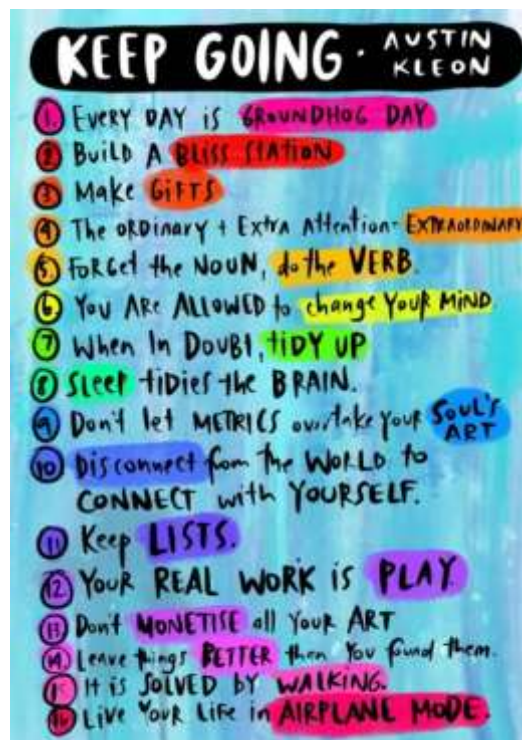 KEEP GOING · AUSTIN KLEON
1. EVERY DAY is GROUNDHOG DAY
2 BUILD A BLISS STATION
3 Make GIFTS
4 The ORDINARY + Extra Attention = EXTRAORDINARY
5 FORGET the NOUN, do the VERB.
6 YOU ARE ALLOWED to change YOUR MIND
7 When In DOUBT, tIDY UP
8 SLEEP tidies the BRAIN.
9 Don't let METRICS overtake your SOUL'S ART
10 Disconnect from the WORLD to
CONNECT with YOURSELF.
11 Keep LISTS.
12 YOUR REAL WORK is PLAY.
13 Don't MONETISE all YOUR ART
14 Leave things BETTER then You found them.
15 It is SOLVED BY WALKING.
16 Live YOUR LIFE in AIRPLANE MODE.